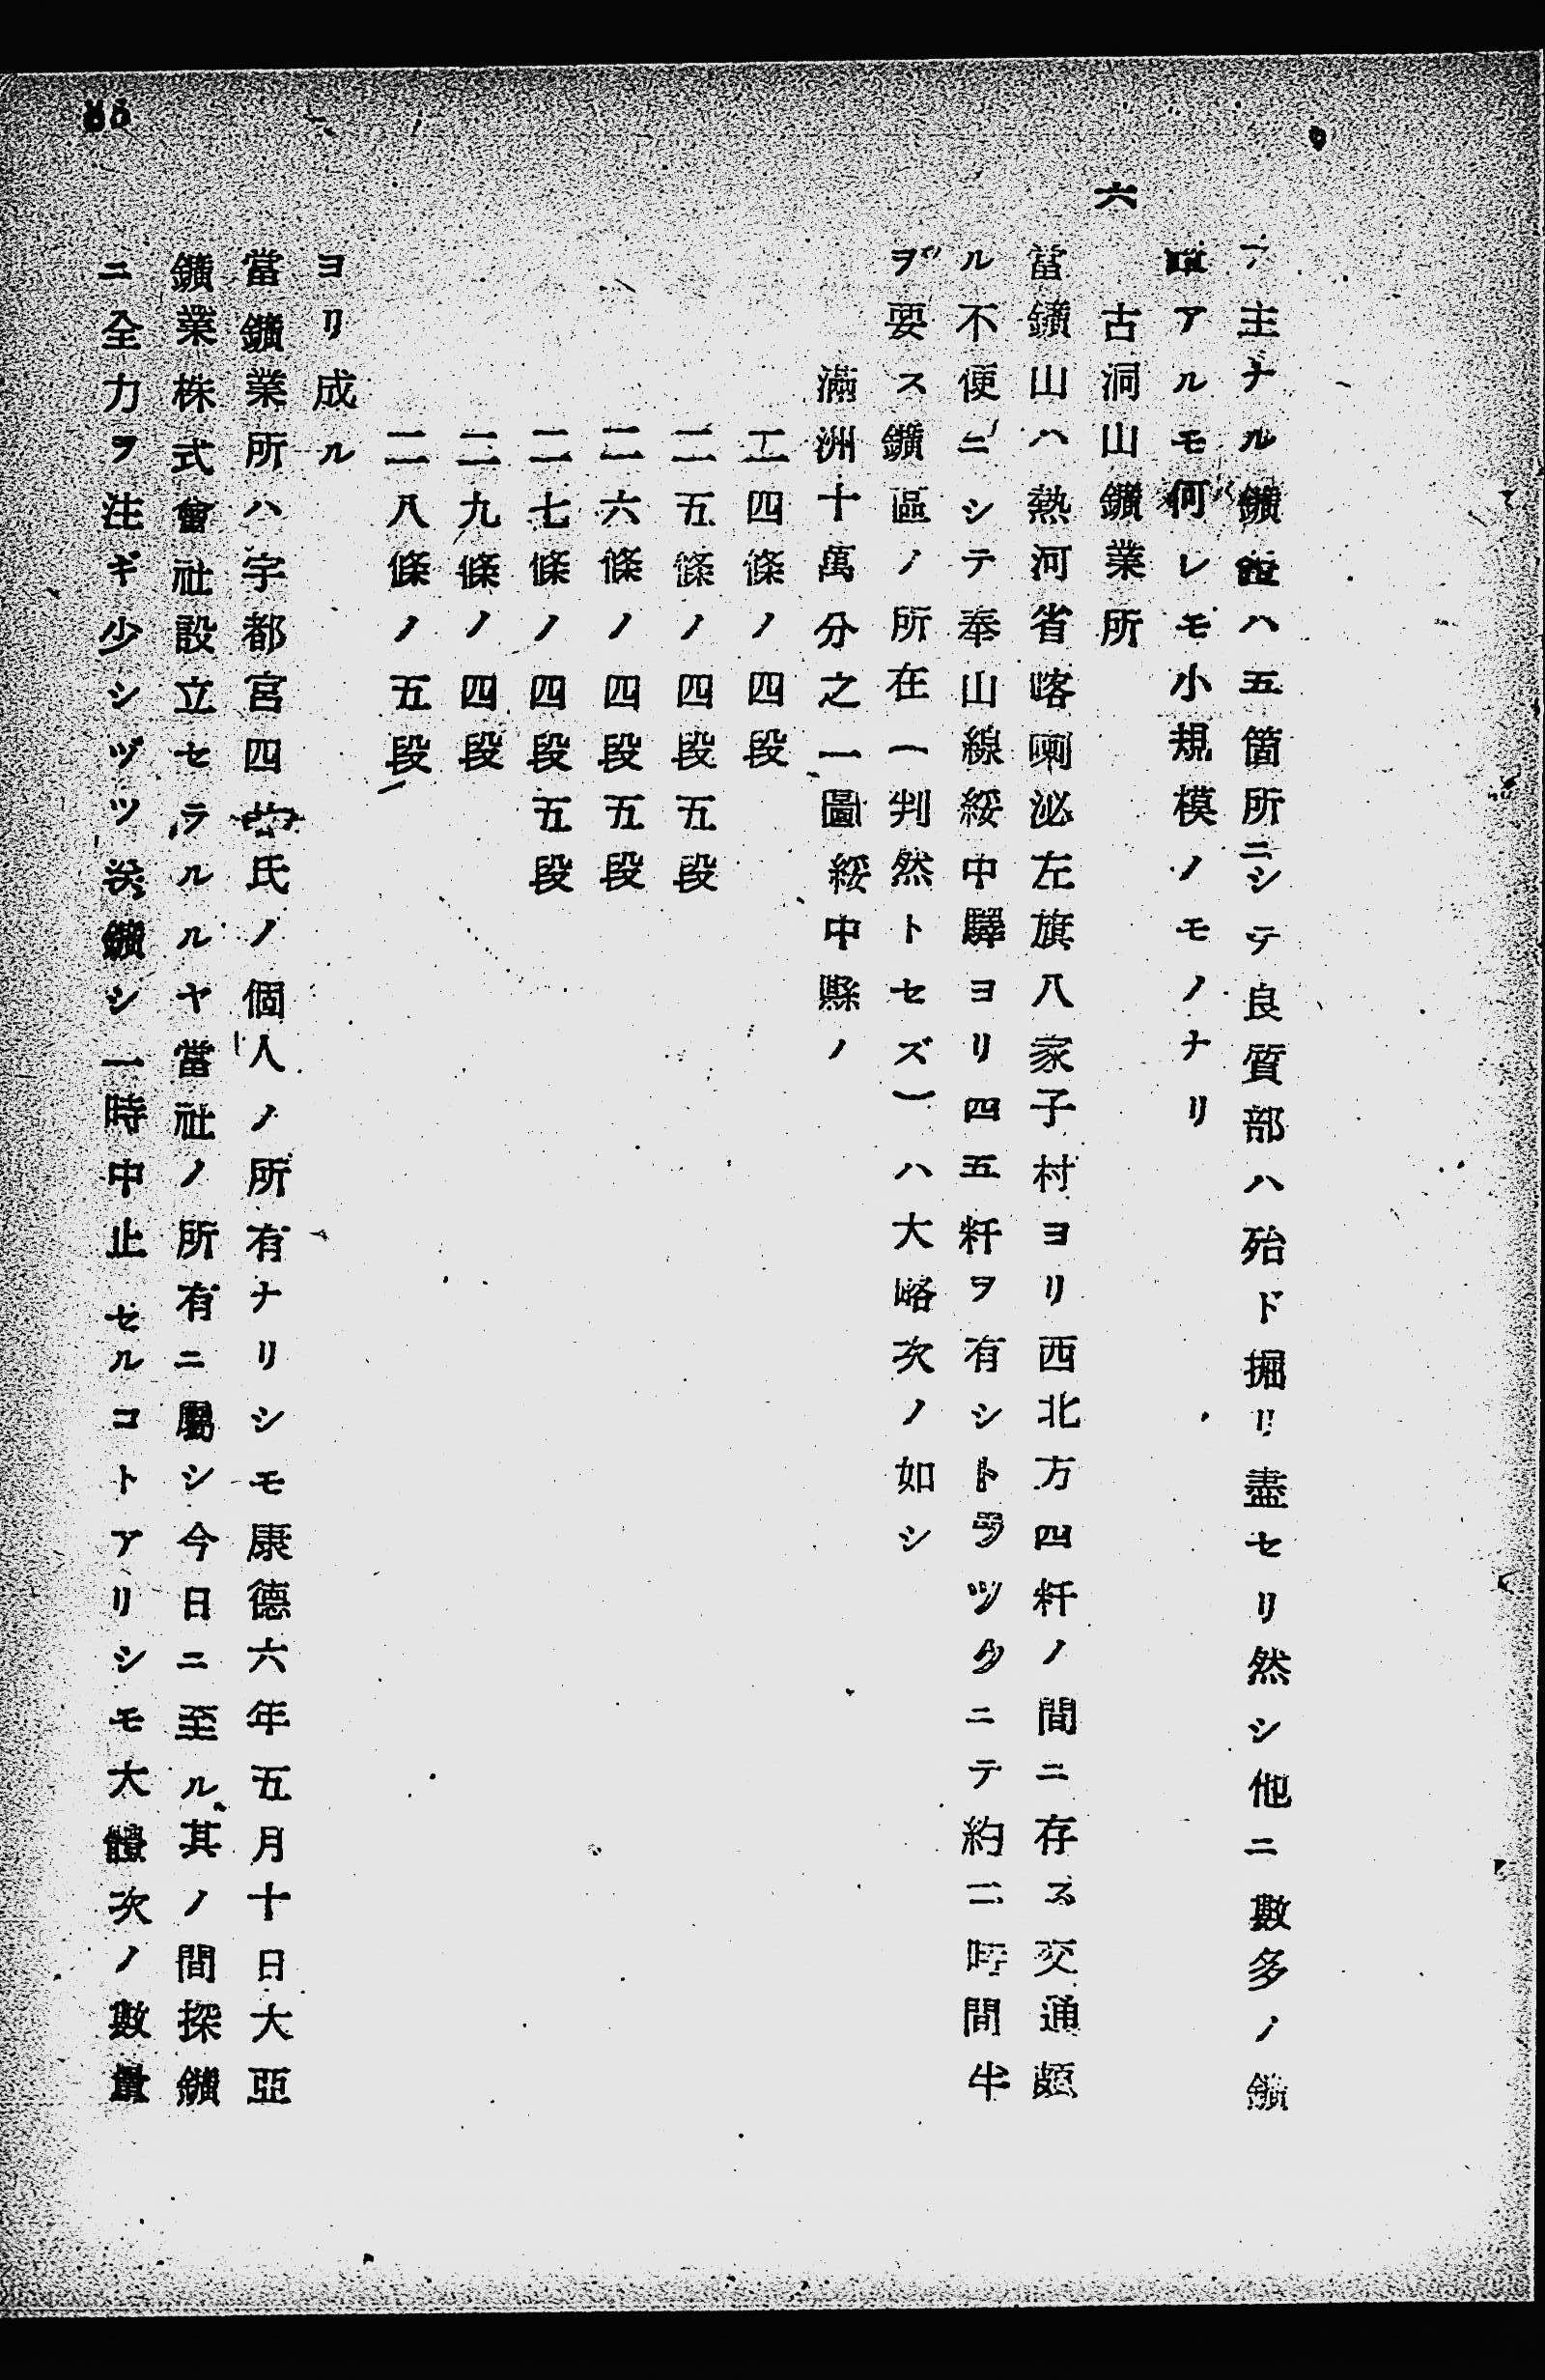 主ナル鑛體ハ五箇所ニシテ良質部ハ殆ド掘リ盡セリ然シ他ニ數多ノ鑛
アルモ何レモ小規模ノモノナリ
六 古洞山鑛業所
當鑛山ハ熱河省喀喇泌左旗八家子村ヨリ西北方四粁ノ間ニ存ス交通頗
ル不便ニシテ奉山線綏中驛ヨリ四五粁ヲ有シトラツクニテ約二時間半
ヲ要ス鑛區ノ所在(判然トセズ)ハ大略次ノ如シ
滿洲十萬分之一圖綏中縣ノ
二四條ノ四段
二五條ノ四段五段
二六條ノ四段五段
二七條ノ四段五段
二九條ノ四段
二八條ノ五段
ヨリ成ル
當鑛業所ハ宇都宮四郎氏ノ個人ノ所有ナリシモ康德六年五月十日大亞
鑛業株式會社設立セラルルヤ當社ノ所有ニ屬シ今日ニ至ル其ノ間探鑛
ニ全力ヲ注ギ少シヅツ送鑛シ一時中止セルコトアリシモ大體次ノ數量